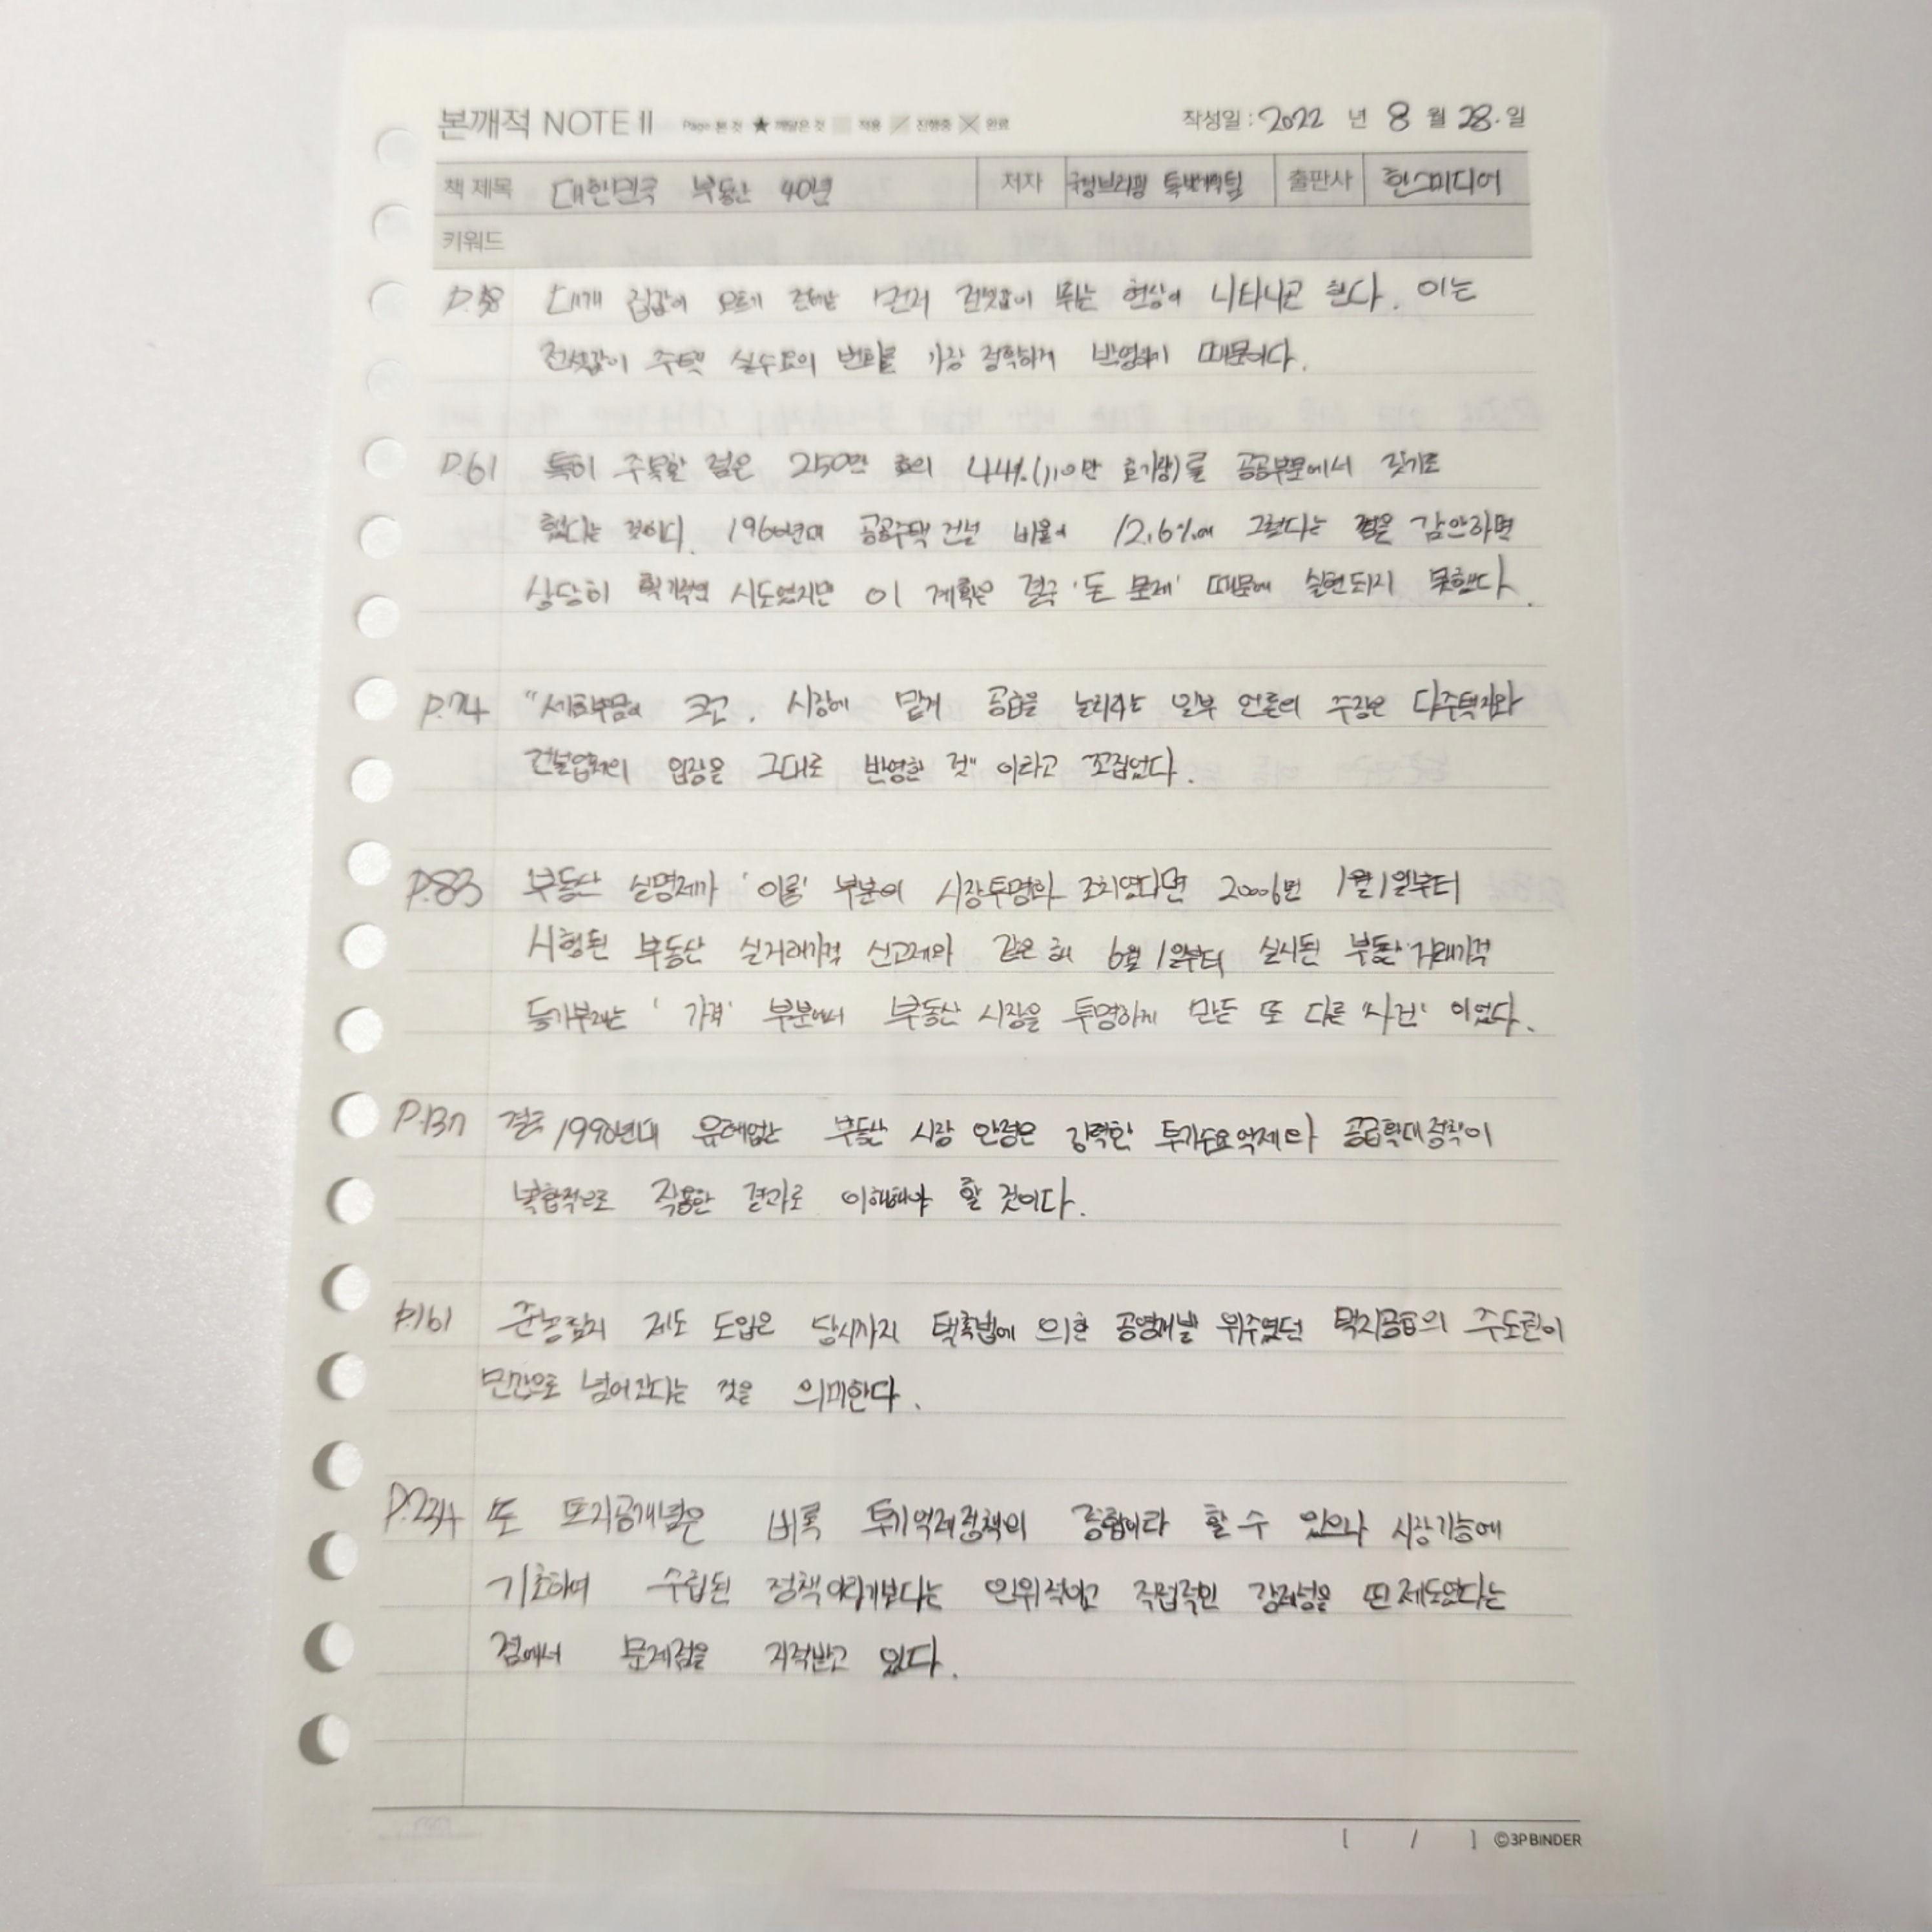 본깨적 NOTE II Page 본 것 ★ 깨달은 것 적용 진행중 완료 작성일 : 2022 년 8 월 28. 일
책 제목 대한민국 부동산 40년 저자 국정브리핑 특별기획팀 출판사 한스미디어
키워드
P.38 대개 집값이 오르기 전에는 먼저 전셋값이 뛰는 현상이 나타나곤 한다. 이는
전셋값이 주택 실수요의 변화를 가장 정확하게 반영하기 때문이다.
P.61 특히 주목할 점은 250만 호의 44%(110만 호가량)를 공공부문에서 짓기로
했다는 것이다. 1960년대 공공주택 건설 비율이 12.6%에 그쳤다는 점을 감안하면
상당히 획기적인 시도였지만 이 계획은 결국 '돈 문제' 때문에 실현되지 못했다.
P.74 "세금부담이 크고, 시장에 맡게 공급을 늘리라는 일부 언론의 주장은 다주택자와
건설업자의 입장을 그대로 반영한 것" 이라고 꼬집었다.
P.83 부동산 실명제가 '이름' 부분의 시장투명화 조치였다면 20006년 1월1일부터
시행된 부동산 실거래가격 신고제와 같은 해 6월 1일부터 실시된 부동산 거래가격
등기부제는 '가격' 부분에서 부동산 시장을 투명하게 만든 또 다른 '사건' 이었다.
P.137 결국 1990년대 유례없는 부동산 시장 안정은 강력한 투기수요억제와 공급확대정책이
복합적으로 작용한 결과로 이해해야 할 것이다.
P.161 준농림지 제도 도입은 당시까지 택촉법에 의한 공영개발 위주였던 택지공급의 주도권이
민간으로 넘어간다는 것을 의미한다.
P.234 또 토지공개념은 비록 투기억제정책의 종합이라 할 수 있으나 시장기능에
기초하여 수립된 정책이라기보다는 인위적이고 직접적인 강제성을 띤 제도였다는
점에서 문제점을 지적받고 있다.
[ / ] ©3P BINDER